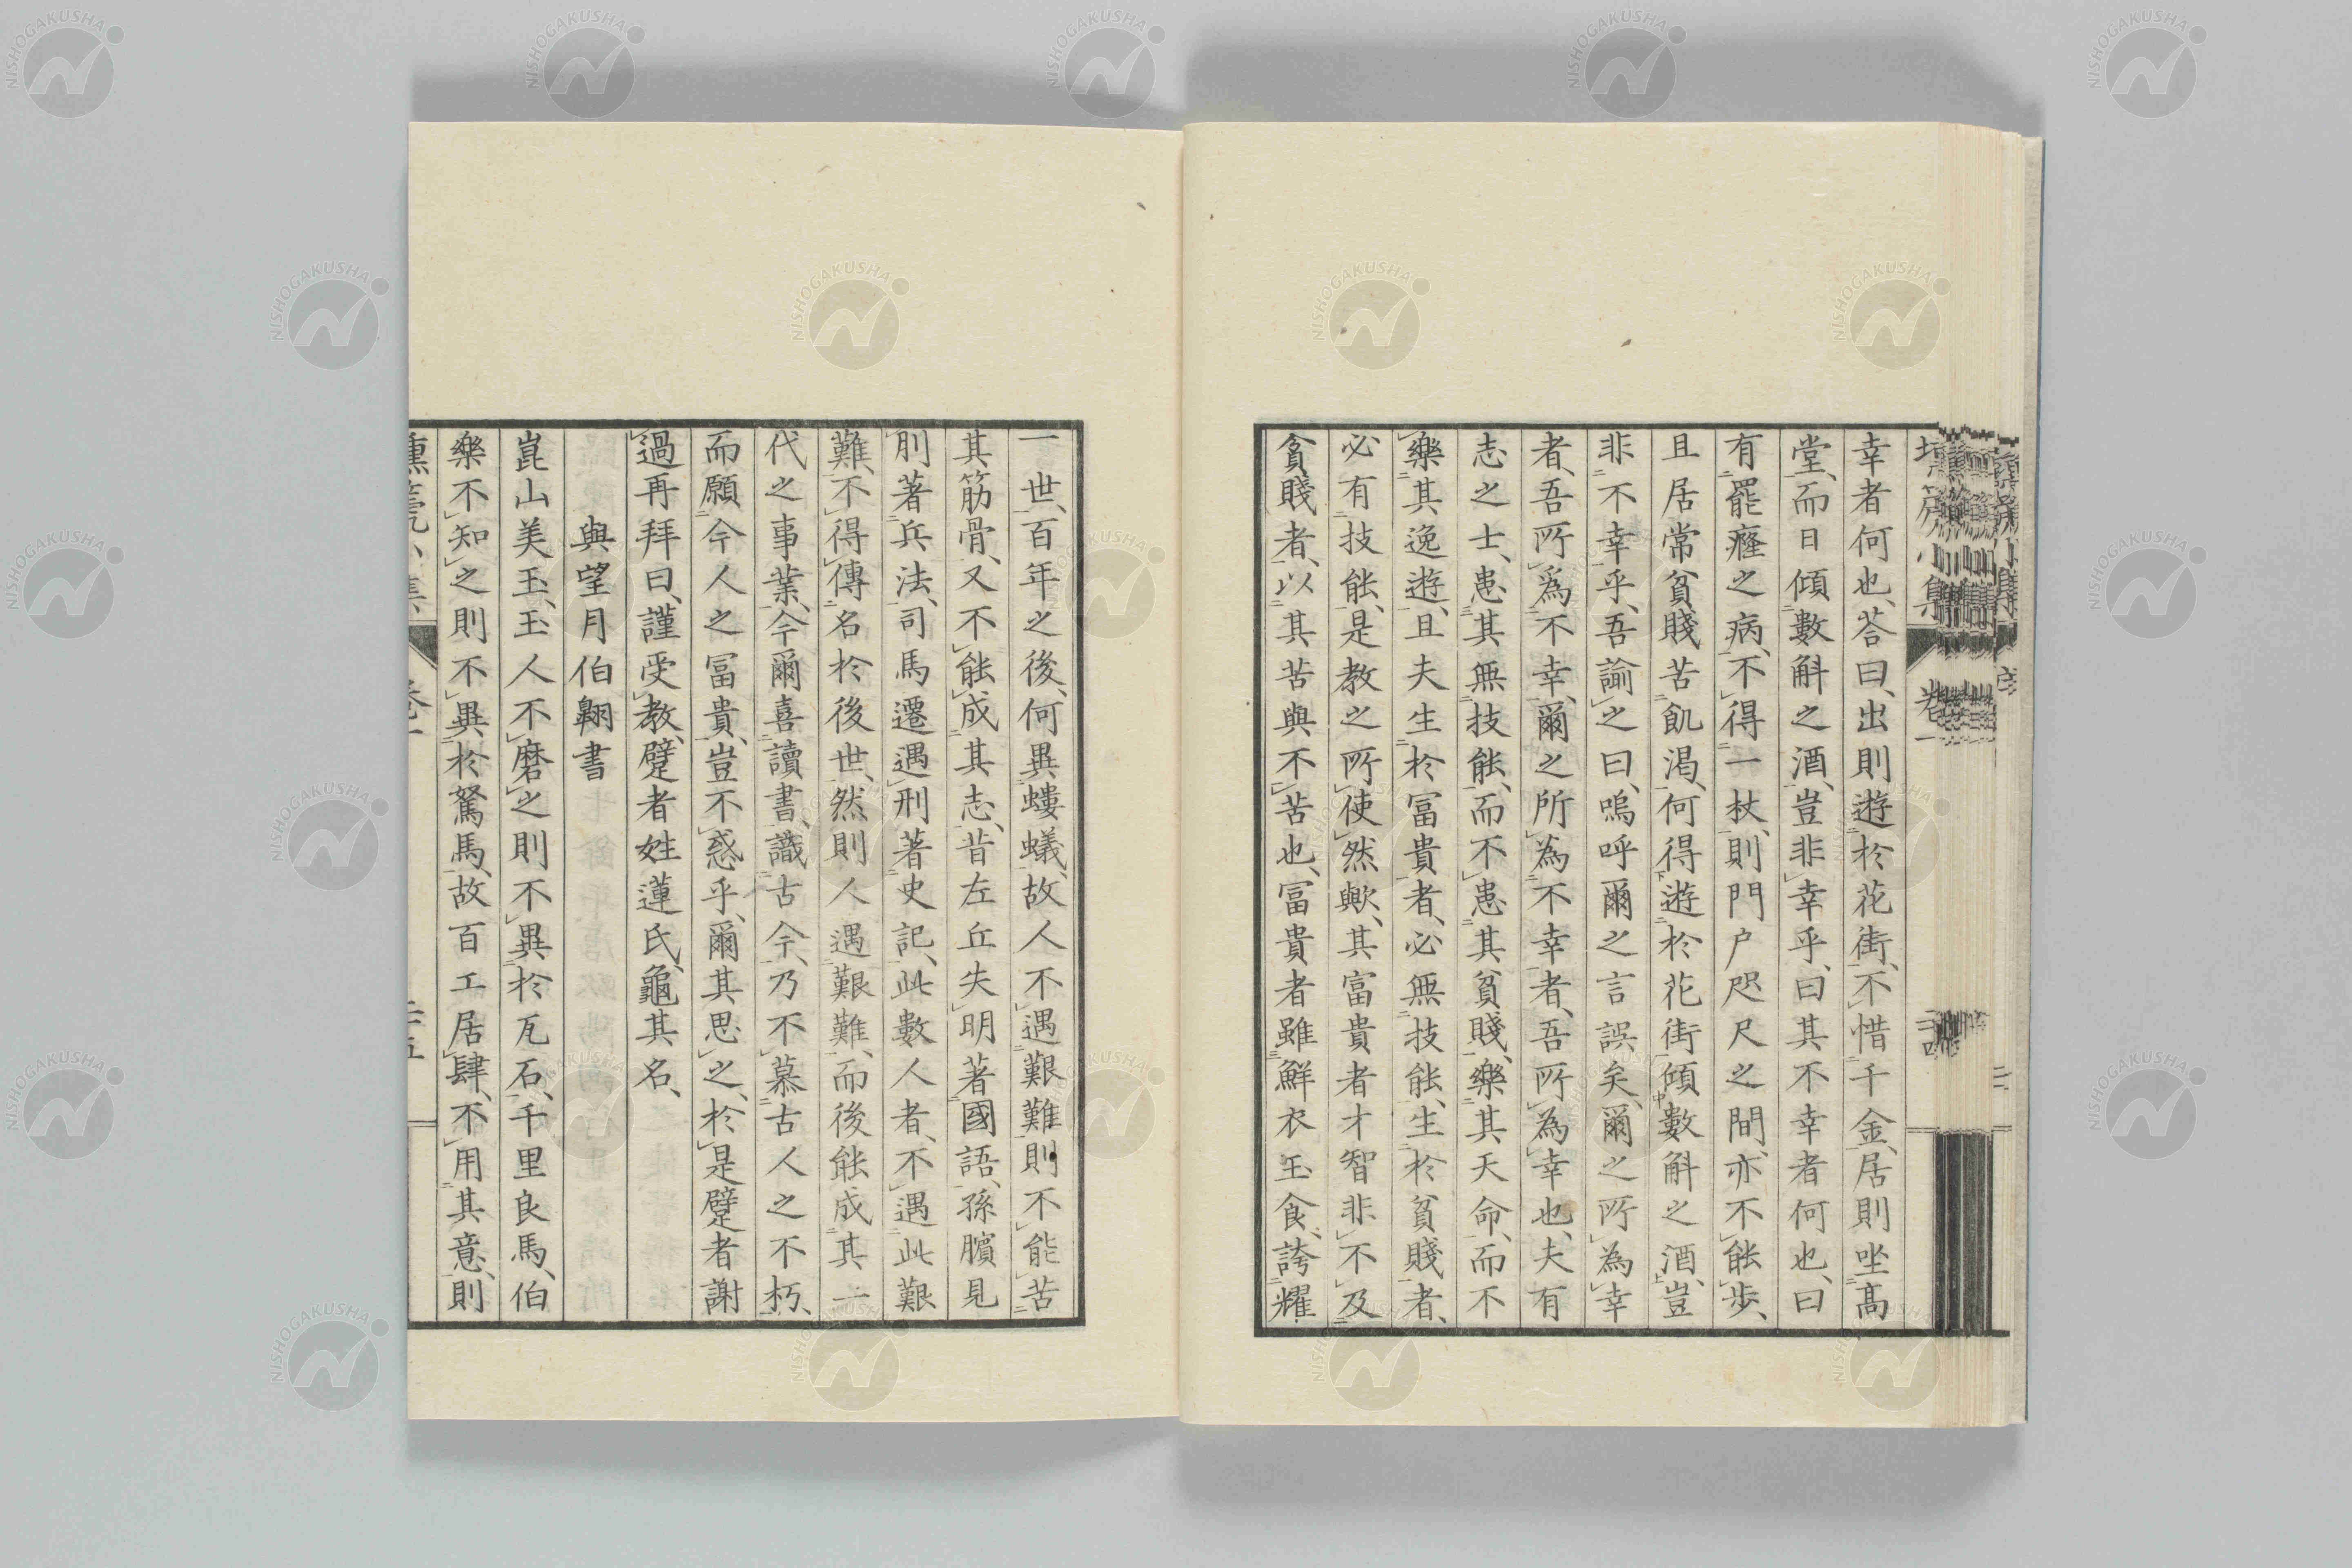 幸者何也、荅曰、出則遊於花街、不惜千金、居則坐髙
堂、而日傾數斛之酒、豈非幸乎、曰其不幸者何也、曰
有罷癃之病、不得一杖、則門戸咫尺之間、亦不能歩、
且居常貧賤苦飢渇、何得遊於花街傾數斛之酒、豈
非不幸乎、吾諭之曰、嗚呼爾之言誤矣、爾之所為幸
者、吾所為不幸、爾之所為不幸者、吾所為幸也、夫有
志之士、患其無技能、而不患其貧賤、樂其天命、而不
樂其逸遊、且夫生於冨貴者、必無技能、生於貧賤者、
必有技能、是教之所使然歟、其富貴者才智非不及
貧賤者、以其苦與不苦也、冨貴者雖鮮衣玉食、誇耀
一世、百年之後、何異螻蟻、故人不遇艱難則不能苦
其筋骨、又不能成其志、昔左丘失明著國語、孫臏見
刖著兵法、司馬遷遇刑著史記、此數人者、不遇此艱
難、不得傳名於後世、然則人遇艱難、而後能成其一
代之事業、今爾喜讀書、識古今、乃不慕古人之不朽、
而願今人之冨貴、豈不惑乎、爾其思之、於是躄者謝
過再拜曰、謹受教、躄者姓蓮氏、龜其名、
與望月伯翺書
崑山美玉、玉人不磨之則不異於瓦石、千里良馬、伯
樂不知之則不異於駑馬、故百工居肆、不用其意、則
NISHOGAKUSHA